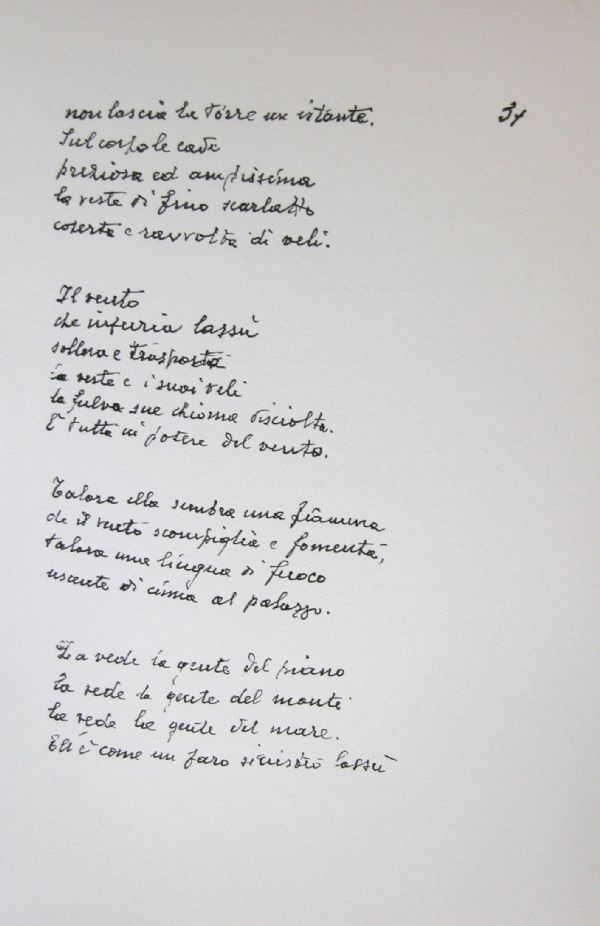 non lascia la torre un istante. 31
Sul corpo le cade
preziosa ed ampissima
la veste di fino scarlatto
coserta e ravvolta di veli.
Il vento
che infuria lassù
solleva e trasporta
la veste e i suoi veli
la fulva sua chioma disciolta.
È tutta in potere del vento.
Talora ella sembra una fiamma
che il vento scompiglia e fomenta,
talora una lingua di fuoco
uscente di cima al palazzo.
La vede la gente del piano
la vede la gente del monte
la vede la gente del mare.
Ell'è come un faro sinistro lassù